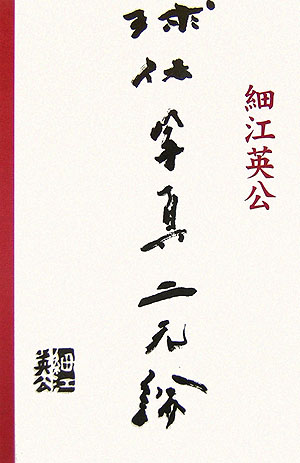 細江英公
球体写真二元論
細江
英公